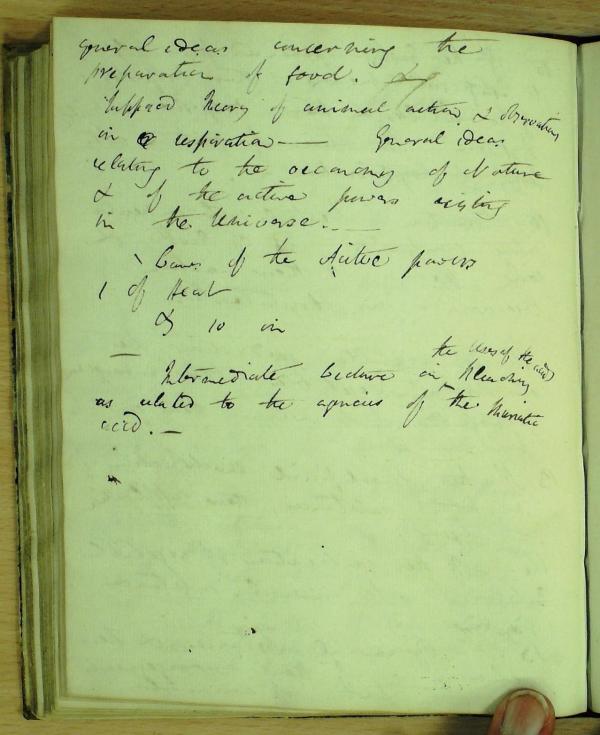 general ideas concerning the
preparation of food. &
Supposed Theory of animal action & Observations
in respiration — General ideas
relating to the oeconomy of Nature
& of the active powers existing
in the Universe. —
Laws of the Active powers
1 of Heat
& 10 in
the Uses of the acid
Intermediate Lecture on Bleaching
as related to the agencies of the Muriatic
acid. —